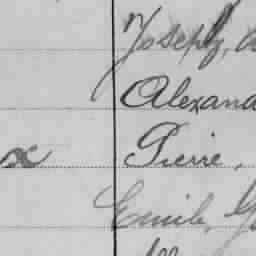 Joseph,
Alexand
x Pierre,
Emile, G